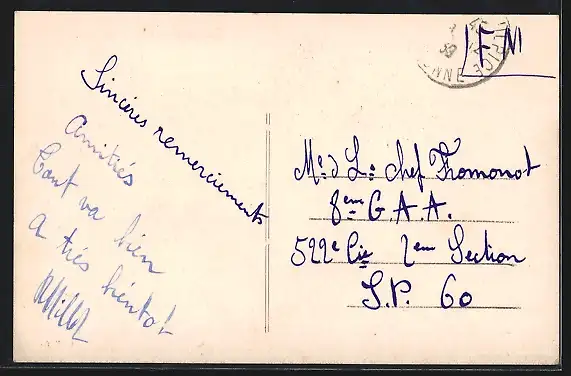 Sincères remerciements
Amitiés
Tout va bien
A très bientot!
F M
Mr. d L: chef Fromonot
8em G.A.A.
522e Cie 2em Section
S.P. 60